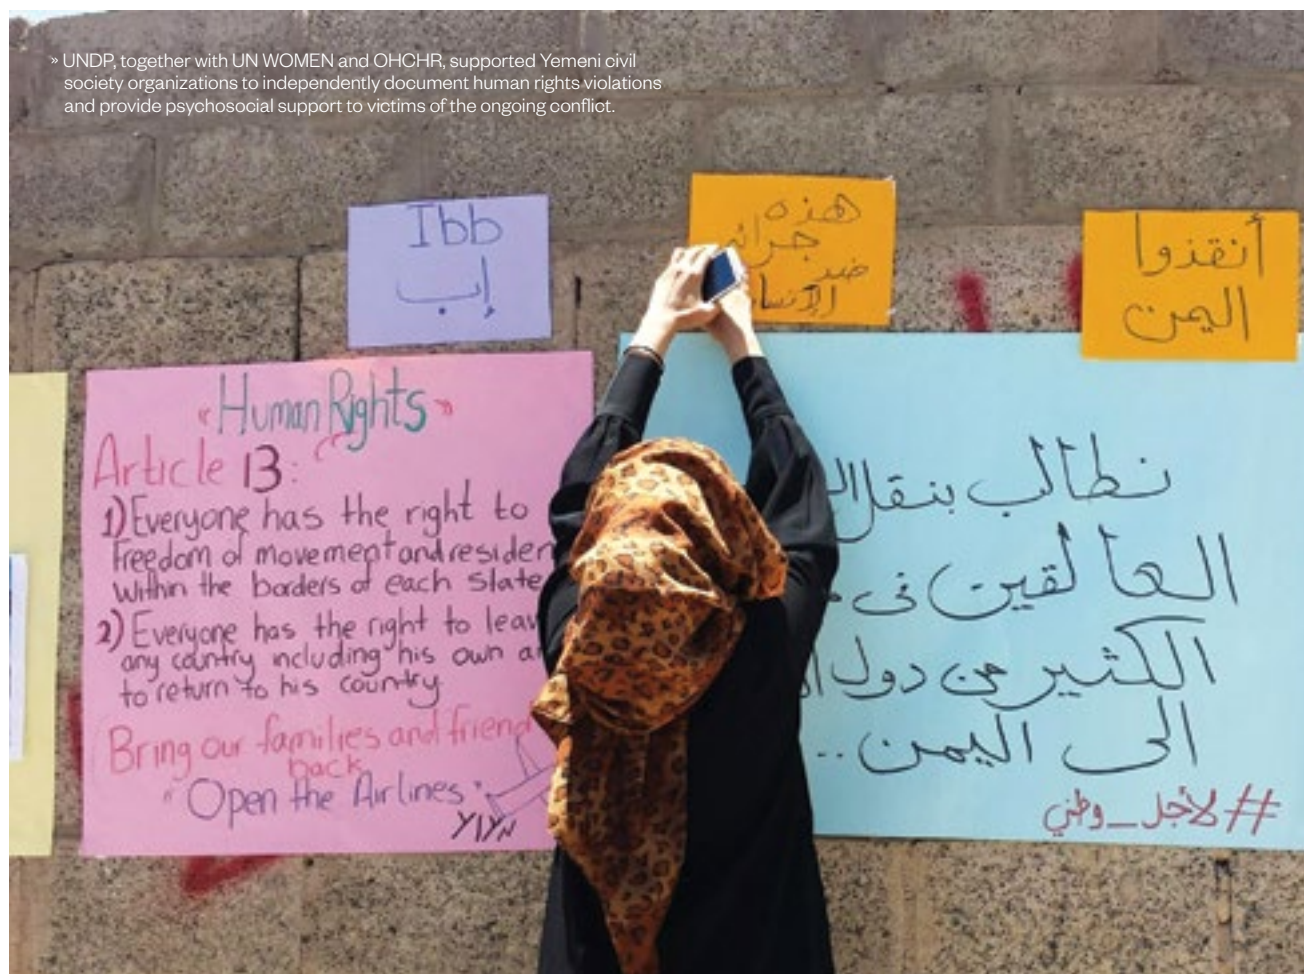 » UNDP, together with UN WOMEN and OHCHR, supported Yemeni civil
society organizations to independently document human rights violations
and provide psychosocial support to victims of the ongoing conflict.
Ibb
إب
هذه
ضد
أنقذوا
اليمن
"Human Rights"
Article 13:
1) Everyone has the right to
freedom of movement and residen
within the borders of each state
2) Everyone has the right to leav
any country including his own a
to return to his country
Bring our families and friend
back
"Open the Airlines"
نطالب بنقل ال
العالقين في
الكثير من دول
الى اليمن..
#لأجل_وطني